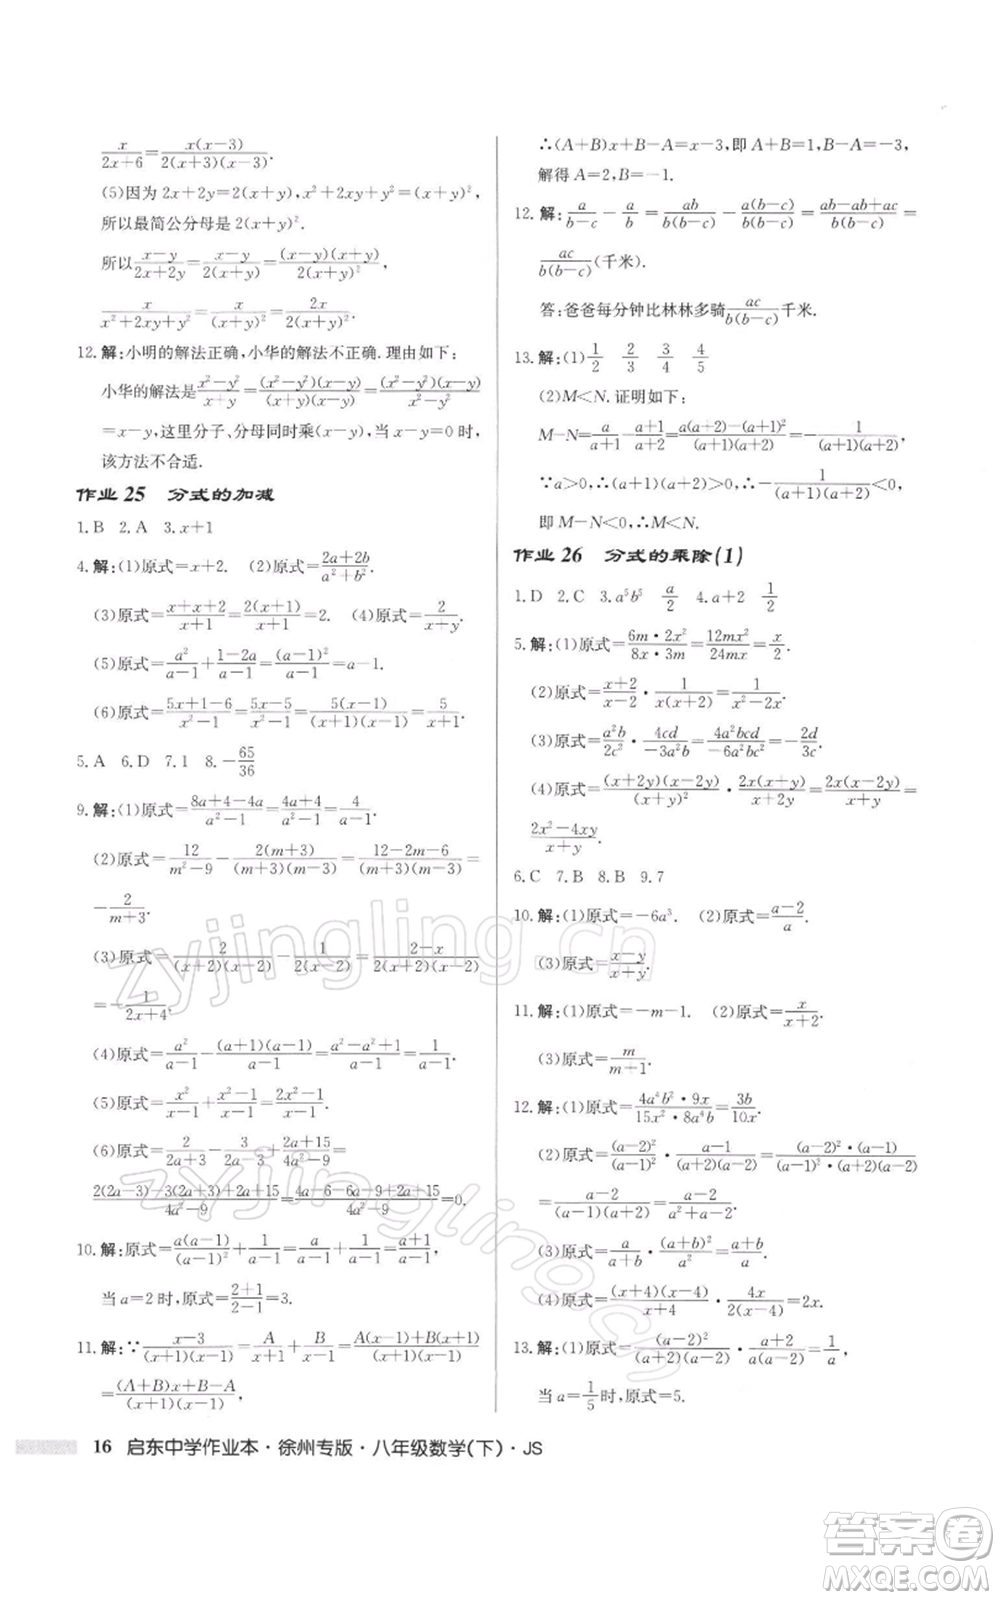 x/(2x+6)=x(x-3)/[2(x+3)(x-3)].
(5)因为 2x+2y=2(x+y),x²+2xy+y²=(x+y)²,
所以最简公分母是 2(x+y)².
所以(x-y)/(2x+2y)=(x-y)/[2(x+y)]=(x-y)(x+y)/[2(x+y)²],
x/(x²+2xy+y²)=x/(x+y)²=2x/[2(x+y)²].
12.解:小明的解法正确,小华的解法不正确.理由如下:
小华的解法是(x²-y²)/(x+y)=(x²-y²)(x-y)/[(x+y)(x-y)]=(x²-y²)(x-y)/(x²-y²)
=x-y,这里分子、分母同时乘(x-y),当 x-y=0时,
该方法不合适.
作业 25 分式的加减
1.B 2.A 3.x+1
4.解:(1)原式=x+2. (2)原式=(2a+2b)/(a²+b²).
(3)原式=(x+x+2)/(x+1)=2(x+1)/(x+1)=2. (4)原式=2/(x+y).
(5)原式=a²/(a-1)+(1-2a)/(a-1)=(a-1)²/(a-1)=a-1.
(6)原式=(5x+1-6)/(x²-1)=(5x-5)/(x²-1)=5(x-1)/[(x+1)(x-1)]=5/(x+1).
5.A 6.D 7.1 8.-65/36
9.解:(1)原式=(8a+4-4a)/(a²-1)=(4a+4)/(a²-1)=4/(a-1).
(2)原式=12/(m²-9)-2(m+3)/[(m+3)(m-3)]=(12-2m-6)/[(m+3)(m-3)]=
-2/(m+3).
(3)原式=2/[(x+2)(x-2)]-1/(x-2)·1/2=(2-x)/[2(x+2)(x-2)]
=-1/(2x+4).
(4)原式=a²/(a-1)-(a+1)(a-1)/(a-1)=(a²-a²+1)/(a-1)=1/(a-1).
(5)原式=x²/(x-1)+(x²-1)/(x-1)=(2x²-1)/(x-1).
(6)原式=2/(2a+3)-3/(2a-3)+(2a+15)/(4a²-9)=
[2(2a-3)-3(2a+3)+(2a+15)]/(4a²-9)=(4a-6-6a-9+2a+15)/(4a²-9)=0.
10.解:原式=a(a-1)/(a-1)²+1/(a-1)=a/(a-1)+1/(a-1)=(a+1)/(a-1),
当 a=2时,原式=(2+1)/(2-1)=3.
11.解:∵(x-3)/[(x+1)(x-1)]=A/(x+1)+B/(x-1)=[A(x-1)+B(x+1)]/[(x+1)(x-1)]
=[(A+B)x+B-A]/[(x+1)(x-1)],
∴(A+B)x+B-A=x-3,即 A+B=1,B-A=-3,
解得 A=2,B=-1.
12.解:a/(b-c)-a/b=ab/[b(b-c)]-a(b-c)/[b(b-c)]=(ab-ab+ac)/[b(b-c)]=
ac/[b(b-c)](千米).
答:爸爸每分钟比林林多骑ac/[b(b-c)]千米.
13.解:(1)1/2 2/3 3/4 4/5
(2)M<N.证明如下:
M-N=a/(a+1)-(a+1)/(a+2)=[a(a+2)-(a+1)²]/[(a+1)(a+2)]=-1/[(a+1)(a+2)],
∵a>0,∴a+1>0,a+2>0,∴-1/[(a+1)(a+2)]<0,
即 M-N<0,∴M<N.
作业 26 分式的乘除(1)
1.D 2.C 3.a⁵b⁵ a/2 4.a+2 1/2
5.解:(1)原式=(6m·2x²)/(8x·3m)=12mx²/24mx=x/2.
(2)原式=(x+2)/(x-2)·1/[x(x+2)]=1/(x²-2x).
(3)原式=a²b/2c²·4cd/(-3a²b)=4a²bcd/(-6a²bc²)=-2d/3c.
(4)原式=(x+2y)(x-2y)/(x+y)²·2x(x+y)/(x+2y)=2x(x-2y)/(x+y)=
(2x²-4xy)/(x+y).
6.C 7.B 8.B 9.7
10.解:(1)原式=-6a³. (2)原式=(a-2)/a.
(3)原式=(x-y)/(x+y).
11.解:(1)原式=-m-1. (2)原式=x/(x+2).
(3)原式=m/(m+1).
12.解:(1)原式=(4a⁴b²·9x)/(15x²·8a⁴b)=3b/10x.
(2)原式=(a-2)²/(a-1)²·(a-1)/[(a+2)(a-2)]=[(a-2)²·(a-1)]/[(a-1)²·(a+2)(a-2)]
=(a-2)/[(a-1)(a+2)]=(a-2)/(a²+a-2).
(3)原式=a/(a+b)·(a+b)(a-b)/[a(a-b)]=1.
(4)原式=(x+4)(x-4)/(x+4)·4x/[2(x-4)]=2x.
13.解:原式=(a-2)²/[(a+2)(a-2)]·(a+2)/[a(a-2)]=1/a,
当 a=1/5时,原式=5.
16 启东中学作业本·徐州专版·八年级数学(下)·JS
zyjingling.cn
zyjingling.cn
答案卷
MXQE.COM